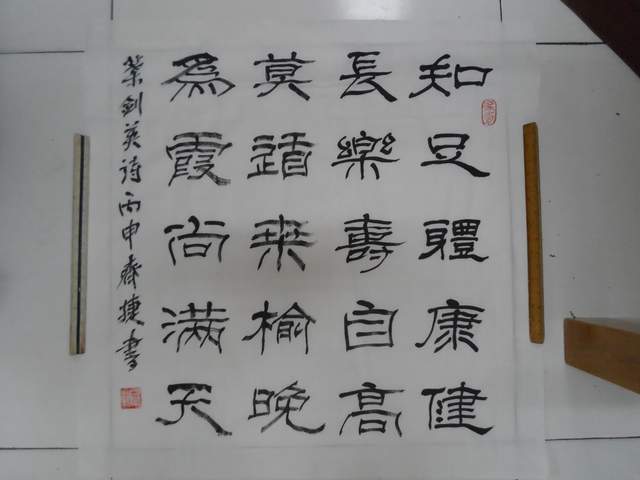 知足體康健
長樂壽自高
莫道桑榆晚
為霞尚滿天
葉劍英詩丙申齊捷書